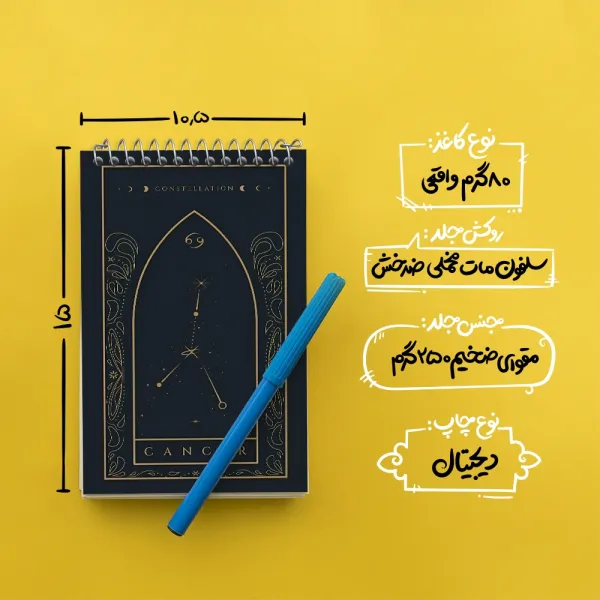 ۱۰٫۵
۱۵
CONSTELLATION
♋
CANCER
نوع کاغذ:
۸۰گرم واقعی
روکش جلد:
سلفون مات مخملی ضدخش
جنس جلد:
مقوای ضخیم ۲۵۰گرم
نوع چاپ:
دیجیتال